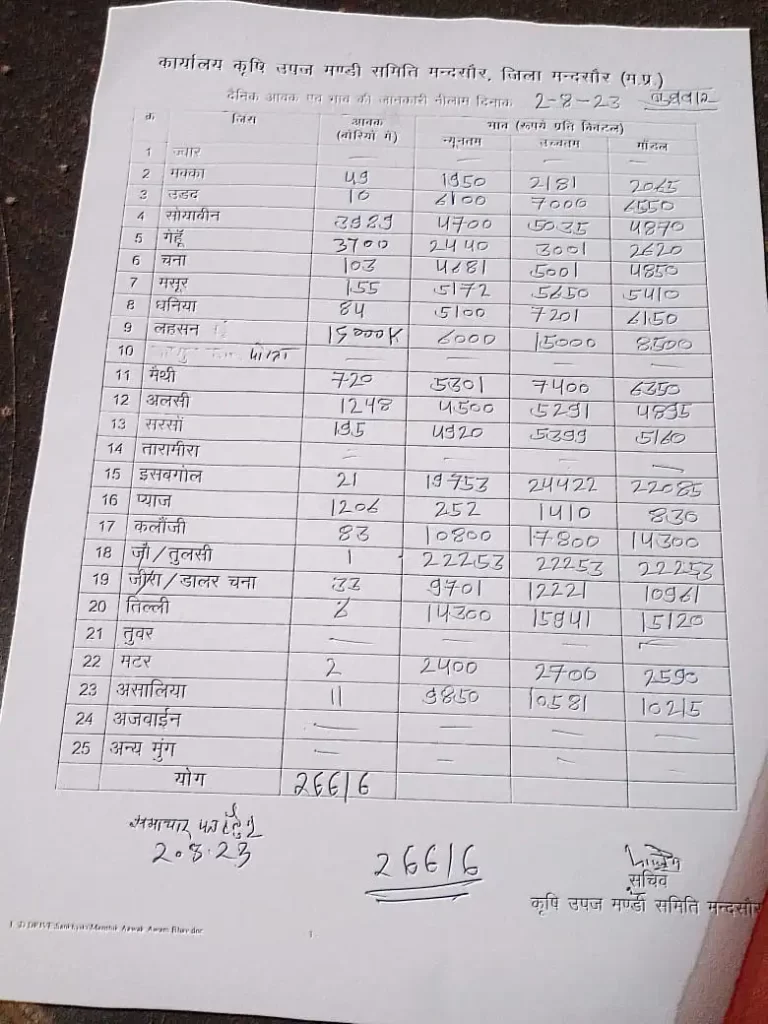 कार्यालय कृषि उपज मण्डी समिति मन्दसौर, जिला मन्दसौर (म.प्र.)
दैनिक आवक एवं भाव की जानकारी नीलाम दिनांक 2-8-23 बुधवार
क्र. जिंस आवक (बोरियों में) भाव (रूपये प्रति क्विंटल)
न्यूनतम उच्चतम मॉडल
1 ज्वार — — — —
2 मक्का 49 1950 2181 2065
3 उडद 10 6100 7000 6550
4 सोयाबीन 3989 4700 5035 4870
5 गेहूँ 3700 2440 3001 2620
6 चना 103 4681 5001 4850
7 मसूर 155 5172 5650 5410
8 धनिया 84 5100 7201 6150
9 लहसन 15000K 6000 15000 8500
10 — — — —
11 मैथी 720 5301 7400 6350
12 अलसी 1248 4500 5291 4895
13 सरसों 195 4920 5399 5160
14 तारामीरा — — — —
15 इसबगोल 21 19753 24422 22085
16 प्याज 1206 252 1410 830
17 कलौंजी 83 10800 17800 14300
18 जौ/तुलसी 1 22253 22253 22253
19 जीरा/डालर चना 33 9701 12221 10961
20 तिल्ली 6 14300 15941 15120
21 तुवर — — — —
22 मटर 2 2400 2700 2590
23 असालिया 11 9850 10581 10215
24 अजवाईन — — — —
25 अन्य मुंग — — — —
योग 26616
समाचार पत्र हेतु
2.8.23
26616
सचिव
कृषि उपज मण्डी समिति मन्दसौर
1